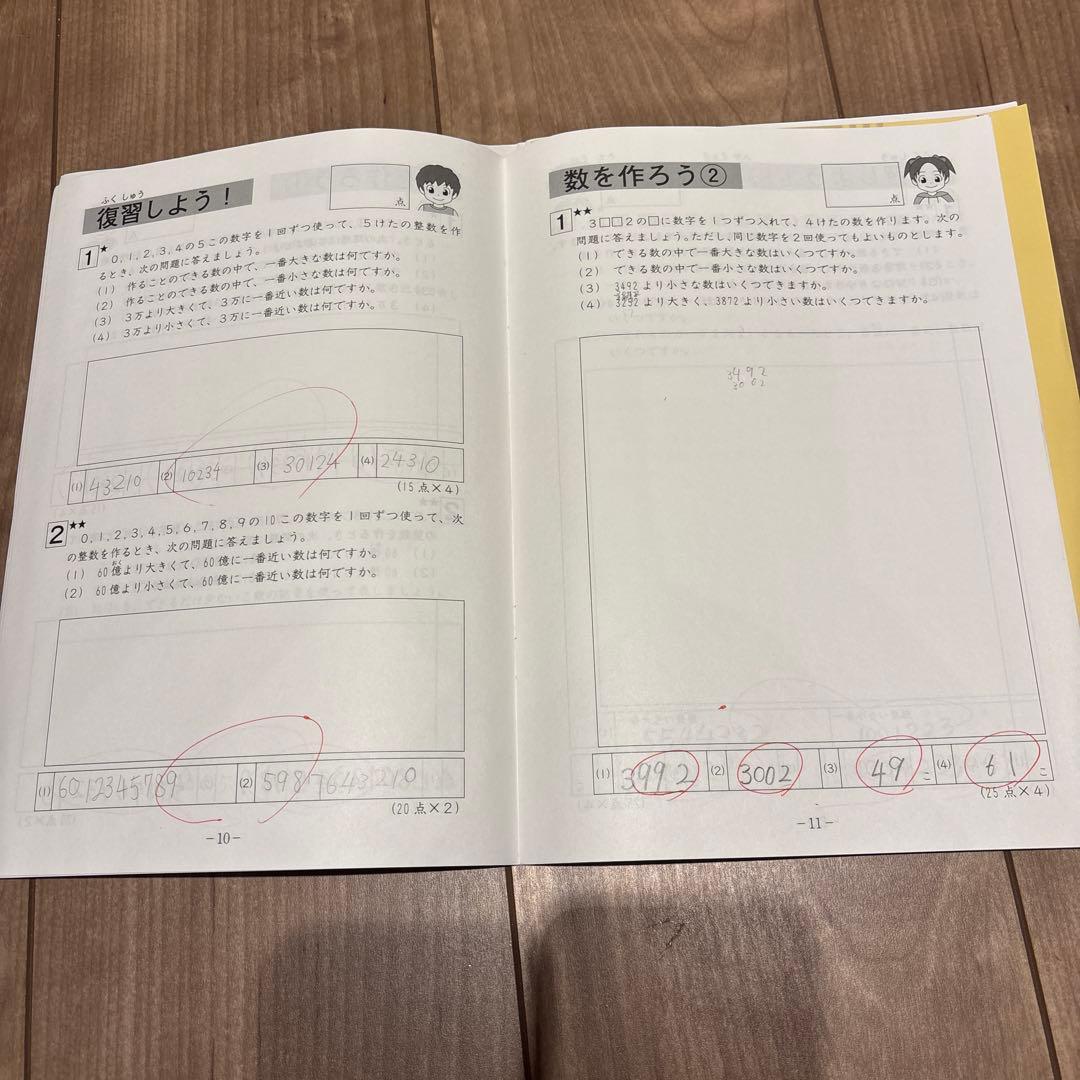 ふくしゅう
復習しよう！
点
1 ★ 0, 1, 2, 3, 4の5この数字を1回ずつ使って、5けたの整数を作
るとき、次の問題に答えましょう。
(1) 作ることのできる数の中で、一番大きな数は何ですか。
(2) 作ることのできる数の中で、一番小さな数は何ですか。
(3) 3万より大きくて、3万に一番近い数は何ですか。
(4) 3万より小さくて、3万に一番近い数は何ですか。
(1) 43210 (2) 10234 (3) 30124 (4) 24310
(15点×4)
2 ★★ 0, 1, 2, 3, 4, 5, 6, 7, 8, 9の10この数字を1回ずつ使って、次
の整数を作るとき、次の問題に答えましょう。
おく
(1) 60億より大きくて、60億に一番近い数は何ですか。
(2) 60億より小さくて、60億に一番近い数は何ですか。
(1) 6012345789 (2) 5987643210
(20点×2)
－10－
数を作ろう②
点
1 ★★ 3□□2の□に数字を1つずつ入れて、4けたの数を作ります。次の
問題に答えましょう。ただし、同じ数字を2回使ってもよいものとします。
(1) できる数の中で一番大きな数はいくつですか。
(2) できる数の中で一番小さな数はいくつですか。
(3) 3492より小さな数はいくつできますか。
(4) 3252より大きく、3872より小さい数はいくつできますか。
3492
3002
(1) 3992 (2) 3002 (3) 49こ (4) 61こ
(25点×4)
－11－